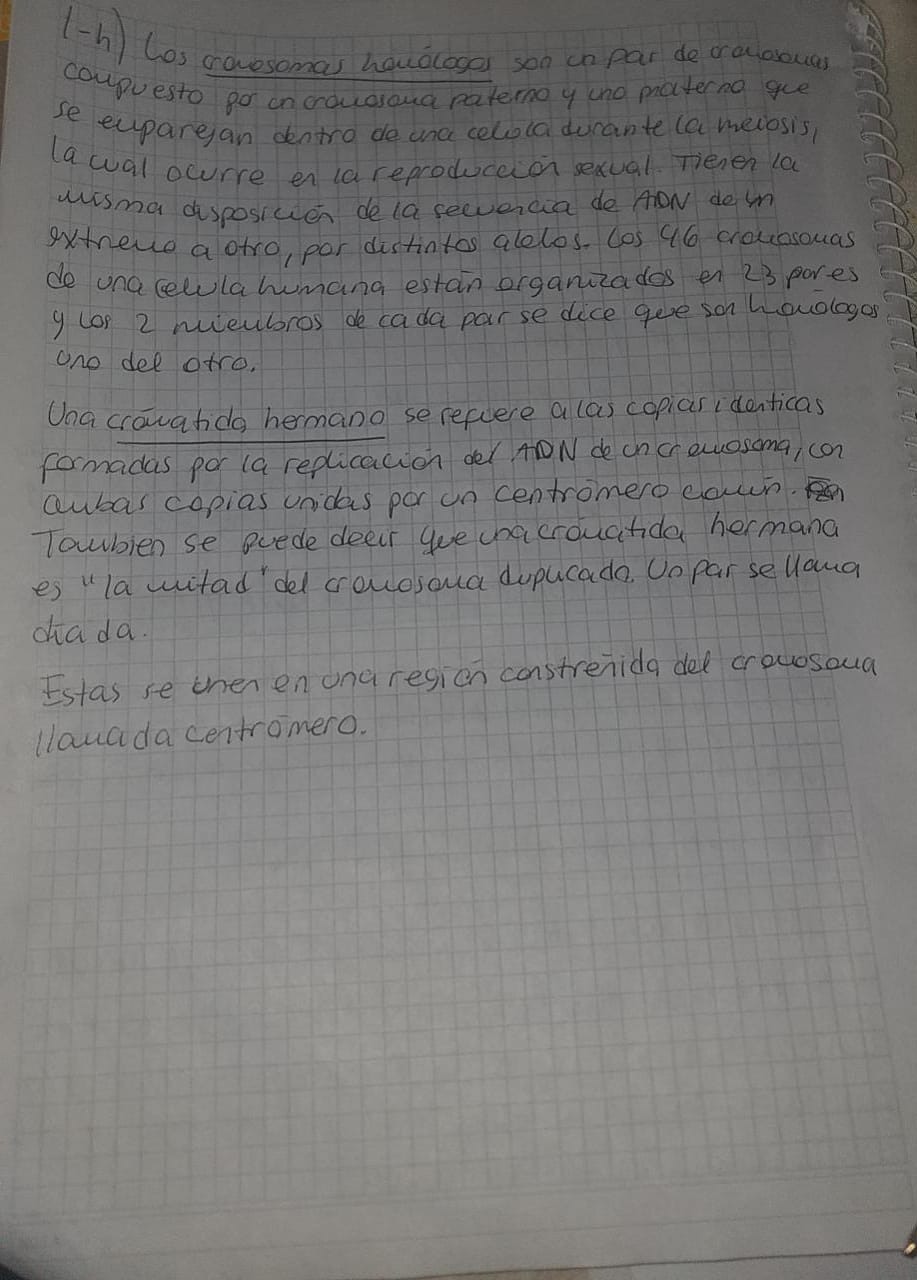 1-h) Los cromosomas homólogos son un par de cromosomas
compuesto por un cromosoma paterno y uno materno que
se emparejan dentro de una celula durante la meiosis,
la cual ocurre en la reproducción sexual. Tienen la
misma disposición de la secuencia de ADN de un
extremo a otro, por distintos alelos. Los 46 cromosomas
de una celula humana están organizados en 23 pares
y los 2 miembros de cada par se dice que son homólogos
uno del otro.
Una cromátida hermana se refiere a las copias identicas
formadas por la replicación del ADN de un cromosoma, con
ambas copias unidas por un centrómero común.
Tambien se puede decir que una cromátida hermana
es "la mitad" del cromosoma duplicado. Un par se llama
diada.
Estas se unen en una región constreñida del cromosoma
llamada centrómero.